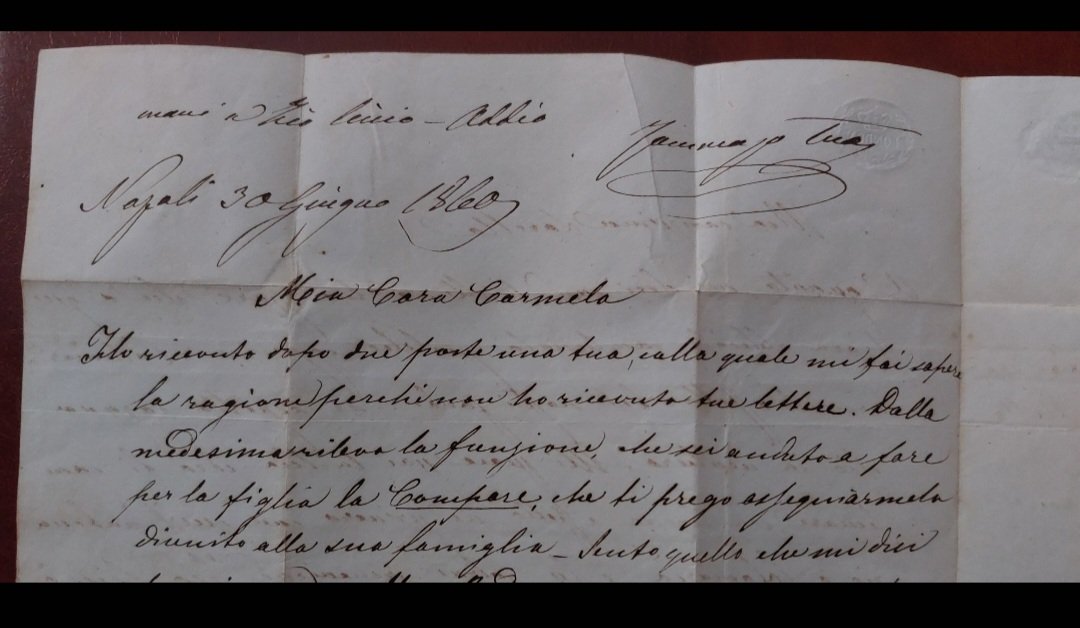 mani a Zio Ciccio – Addio
Tommaso Tuo
Napoli 30 Giugno 1860
Mia Cara Carmela
Ho ricevuto dopo due poste una tua, colla quale mi fai sapere
la ragione perchè non ho ricevuto tue lettere. Dalla
medesima rilevo la funzione, che sei andato a fare
per la figlia la Compare, che ti prego ossequiarmela
diunito alla sua famiglia – Sento quello che mi dici